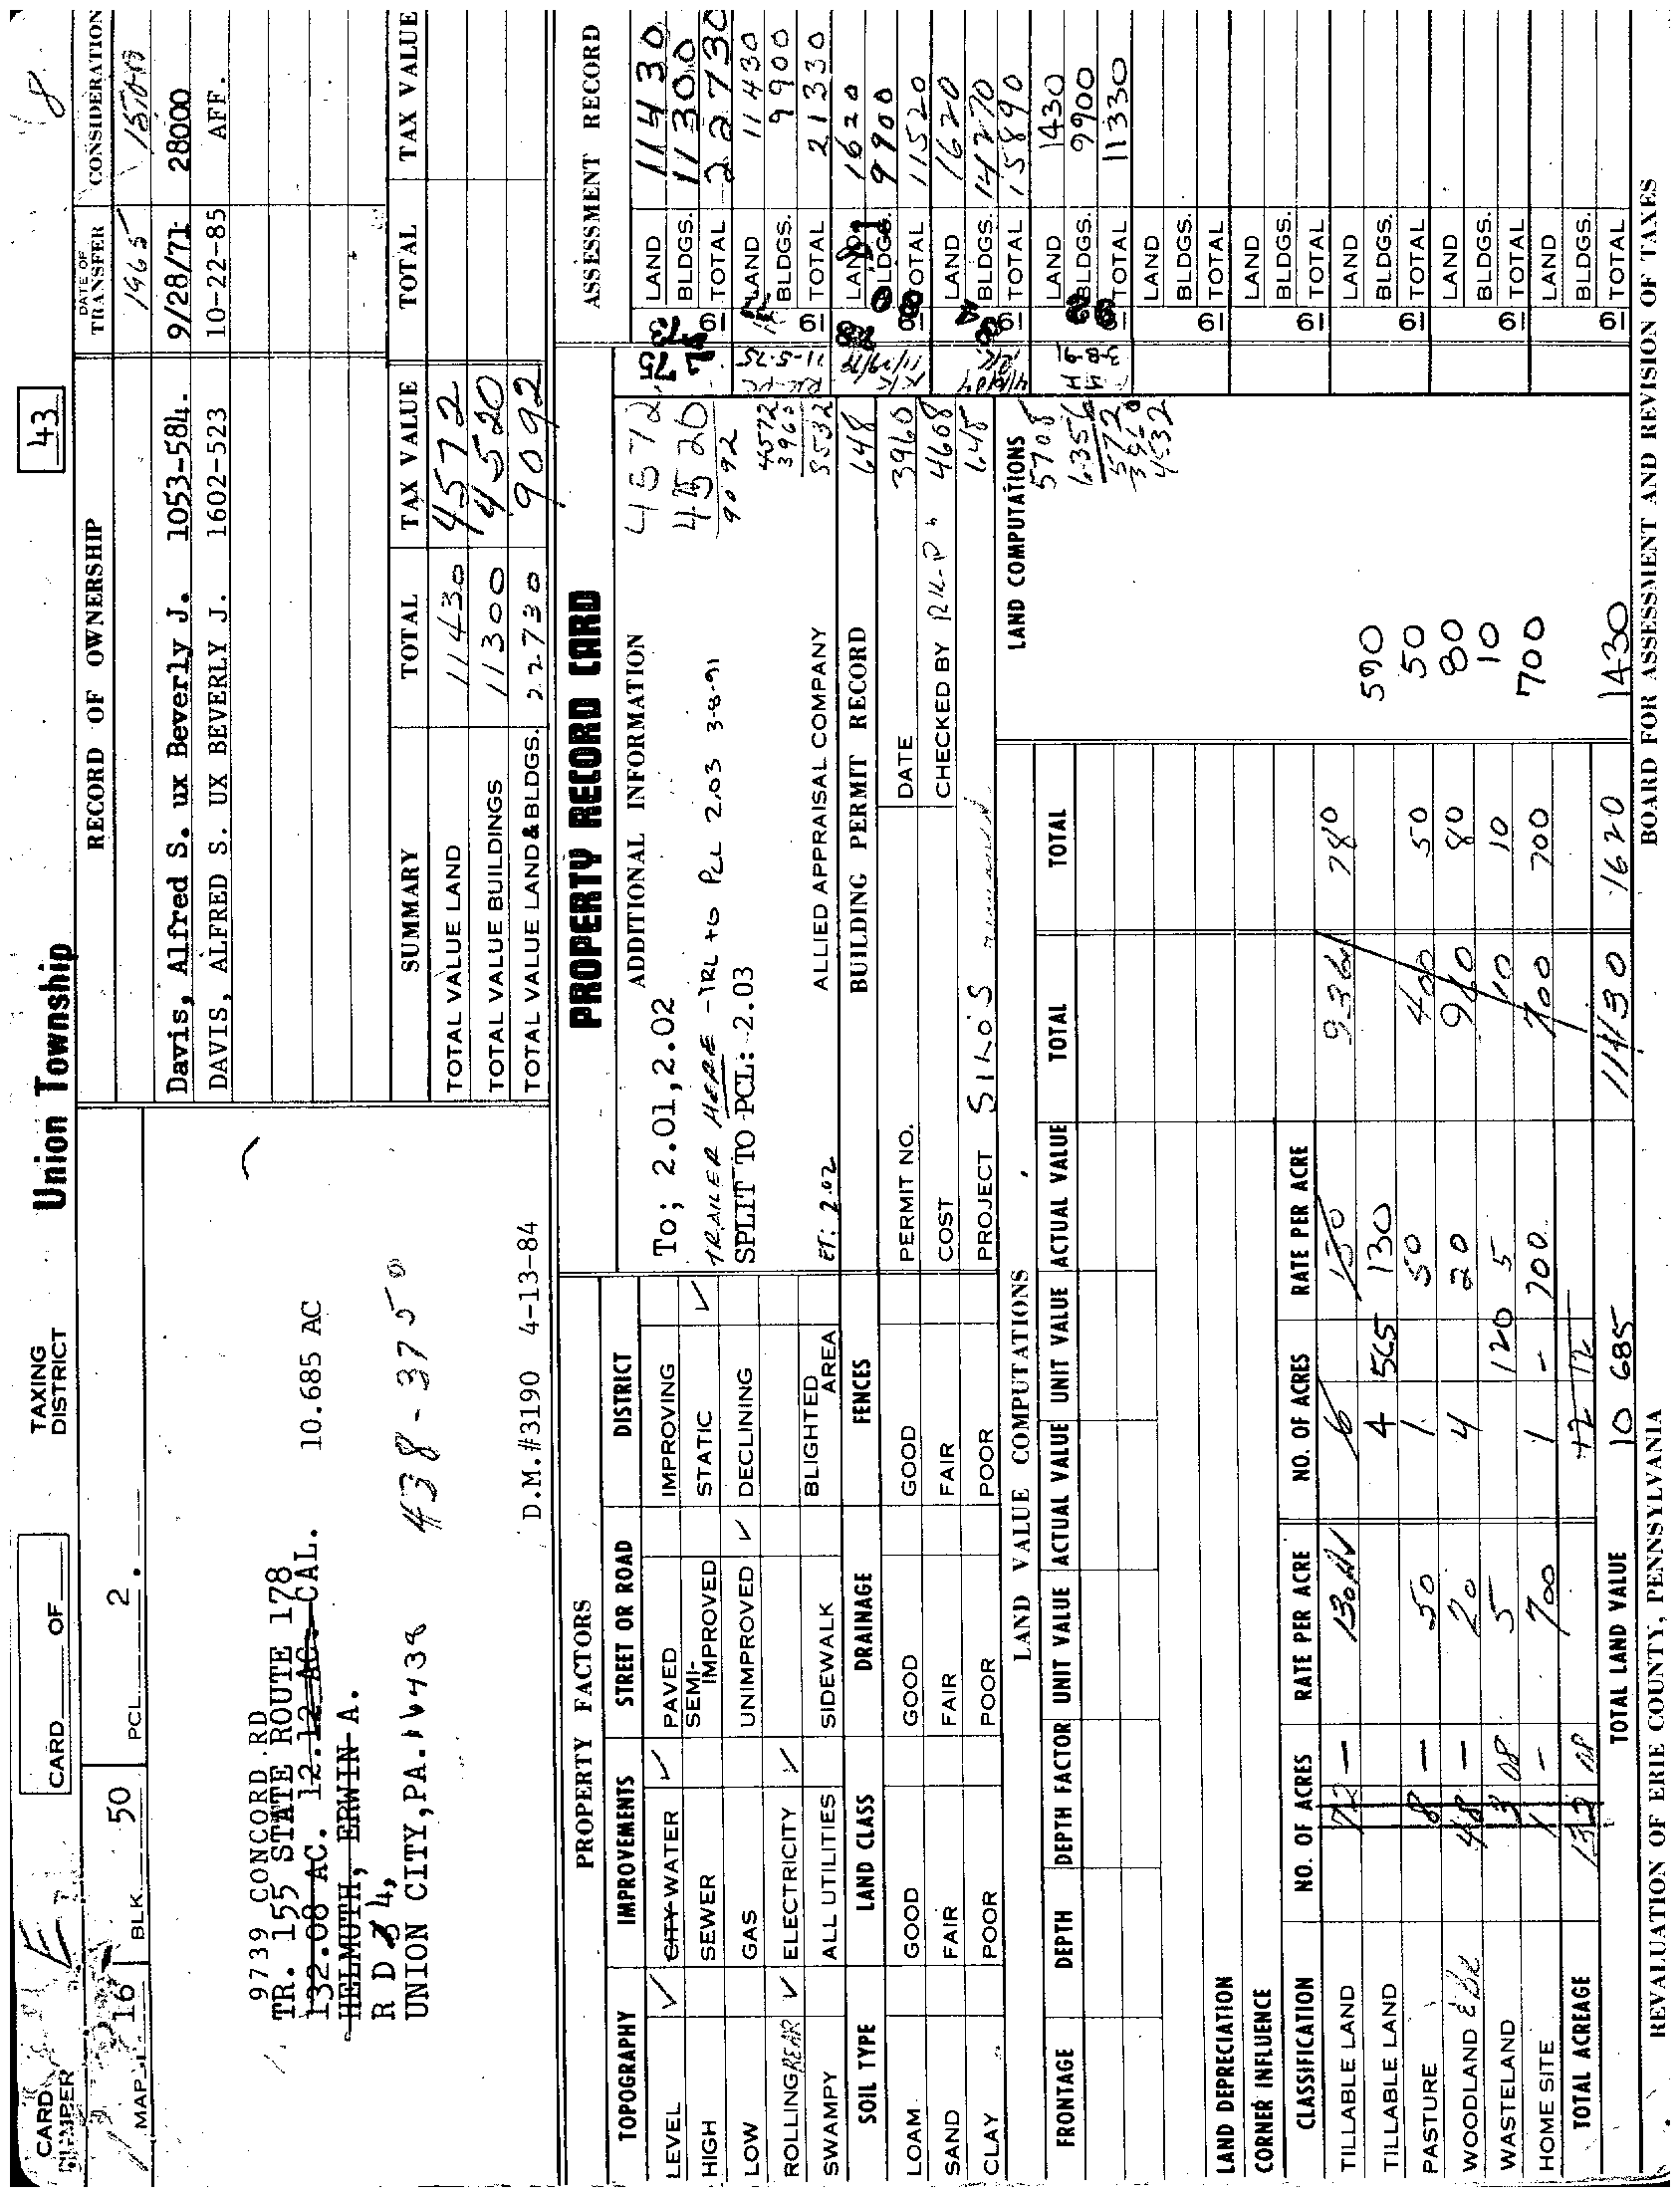 CARD NUMBER
CARD OF
TAXING DISTRICT
Union Township
43
8
MAP 16 BLK 50 PCL. 2.
9739 CONCORD RD
TR. 155 STATE ROUTE 178
132.08 AC. 12.12 AC. CAL.
10.685 AC
HELMUTH, ERWIN A.
R D 4,
UNION CITY, PA. 16438
438-3750
D.M.#3190 4-13-84
RECORD OF OWNERSHIP
DATE OF TRANSFER
CONSIDERATION
1965
Davis, Alfred S. ux Beverly J. 1053-584. 9/28/71 28000
DAVIS, ALFRED S. UX BEVERLY J. 1602-523 10-22-85 AFF.
SUMMARY TOTAL TAX VALUE TOTAL TAX VALUE
TOTAL VALUE LAND 11430 4572
TOTAL VALUE BUILDINGS 11300 4520
TOTAL VALUE LAND & BLDGS. 22730 9092
PROPERTY RECORD CARD
PROPERTY FACTORS
TOPOGRAPHY IMPROVEMENTS STREET OR ROAD DISTRICT
LEVEL ✓ CITY WATER ✓ PAVED IMPROVING
HIGH SEWER SEMI-IMPROVED STATIC ✓
LOW GAS UNIMPROVED ✓ DECLINING
ROLLING REAR ✓ ELECTRICITY ✓
SWAMPY ALL UTILITIES SIDEWALK BLIGHTED AREA
SOIL TYPE LAND CLASS DRAINAGE FENCES
LOAM GOOD GOOD GOOD
SAND FAIR FAIR FAIR
CLAY POOR POOR POOR
ADDITIONAL INFORMATION
To; 2.01,2.02
TRAILER HERE - TRL to PCL 2.03 3-8-91
SPLIT TO PCL: 2.03
ET: 2.02
ALLIED APPRAISAL COMPANY
4572
4520
9092
4572
3960
8532
648
3960
4608
648
5708
6356
572
3960
4532
BUILDING PERMIT RECORD
PERMIT NO. DATE
COST CHECKED BY
PROJECT SILO'S
ASSESSMENT RECORD
75 1973 LAND 11430
BLDGS. 11300
TOTAL 22730
11-5-75 19 LAND 11430
BLDGS. 9900
TOTAL 21330
11/29/79 1980 LAND 1620
BLDGS. 9900
TOTAL 11520
1984 LAND 1620
BLDGS. 14270
TOTAL 15890
3-8-91 19 LAND 1430
BLDGS. 9900
TOTAL 11330
19 LAND
BLDGS.
TOTAL
19 LAND
BLDGS.
TOTAL
19 LAND
BLDGS.
TOTAL
19 LAND
BLDGS.
TOTAL
19 LAND
BLDGS.
TOTAL
LAND VALUE COMPUTATIONS
LAND COMPUTATIONS
FRONTAGE DEPTH DEPTH FACTOR UNIT VALUE ACTUAL VALUE UNIT VALUE ACTUAL VALUE TOTAL TOTAL
LAND DEPRECIATION
CORNER INFLUENCE
CLASSIFICATION NO. OF ACRES RATE PER ACRE NO. OF ACRES RATE PER ACRE
TILLABLE LAND 72 — 130 6 130 9360 780
TILLABLE LAND 4 565 130 590
PASTURE 8 — 50 1 50 400 50 50
WOODLAND 48 — 20 4 20 960 80 80
WASTELAND 3 08 5 120 5 10 10 10
HOME SITE 1 — 700 1 - 700 700 700 700
TOTAL ACREAGE 132 08 12 12
TOTAL LAND VALUE 10 685 11430 1620 1430
REVALUATION OF ERIE COUNTY, PENNSYLVANIA
BOARD FOR ASSESSMENT AND REVISION OF TAXES